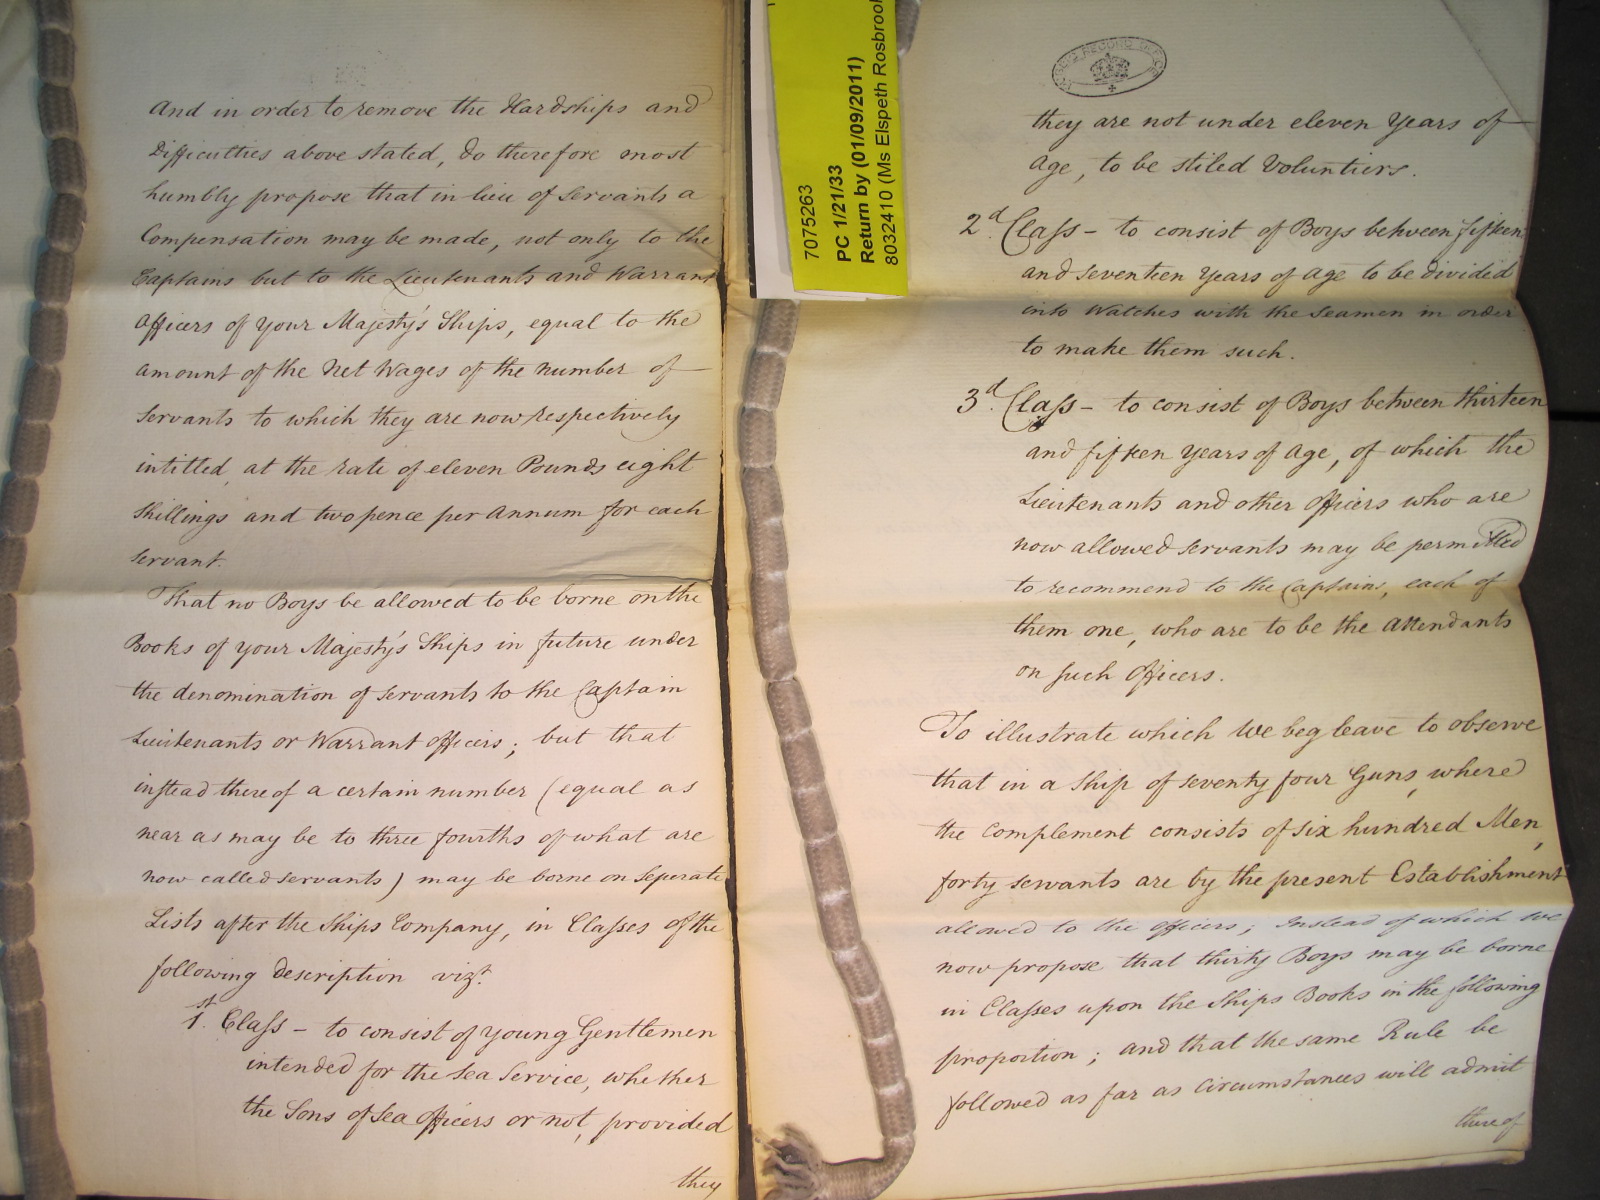 And in order to remove the Hardships and
Difficulties above stated, do therefore most
humbly propose that in lieu of Servants a
Compensation may be made, not only to the
Captains but to the Lieutenants and Warrant
Officers of your Majesty's Ships, equal to the
amount of the Net Wages of the number of
Servants to which they are now respectively
intitled, at the rate of eleven Pounds eight
Shillings and twopence per Annum for each
Servant.
That no Boys be allowed to be borne on the
Books of your Majesty's Ships in future under
the denomination of Servants to the Captain
Lieutenants or Warrant Officers; but that
instead thereof a certain number (equal as
near as may be to three fourths of what are
now called Servants) may be borne on Seperate
Lists after the Ships Company, in Classes of the
following Description vizt.
1st. Class - to consist of young Gentlemen
intended for the Sea Service, whether
the Sons of Sea Officers or not, provided
they
7075263
PC 1/21/33
Return by (01/09/2011)
8032410 (Ms Elspeth Rosbrook
PUBLIC RECORD OFFICE
they are not under eleven Years of
Age, to be stiled Voluntiers.
2d. Class - to consist of Boys between fifteen
and Seventeen Years of Age to be divided
into Watches with the Seamen in order
to make them such.
3d. Class - to consist of Boys between thirteen
and fifteen Years of Age, of which the
Lieutenants and other Officers who are
now allowed Servants may be permitted
to recommend to the Captains, each of
them one, who are to be the Attendants
on such Officers.
To illustrate which We beg leave to observe
that in a Ship of Seventy four Guns, where
the Complement consists of Six hundred Men,
forty servants are by the present Establishment
allowed to the Officers; Instead of which we
now propose that thirty Boys may be borne
in Classes upon the Ships Books in the following
proportion; and that the same Rule be
followed as far as Circumstances will admit
thereof